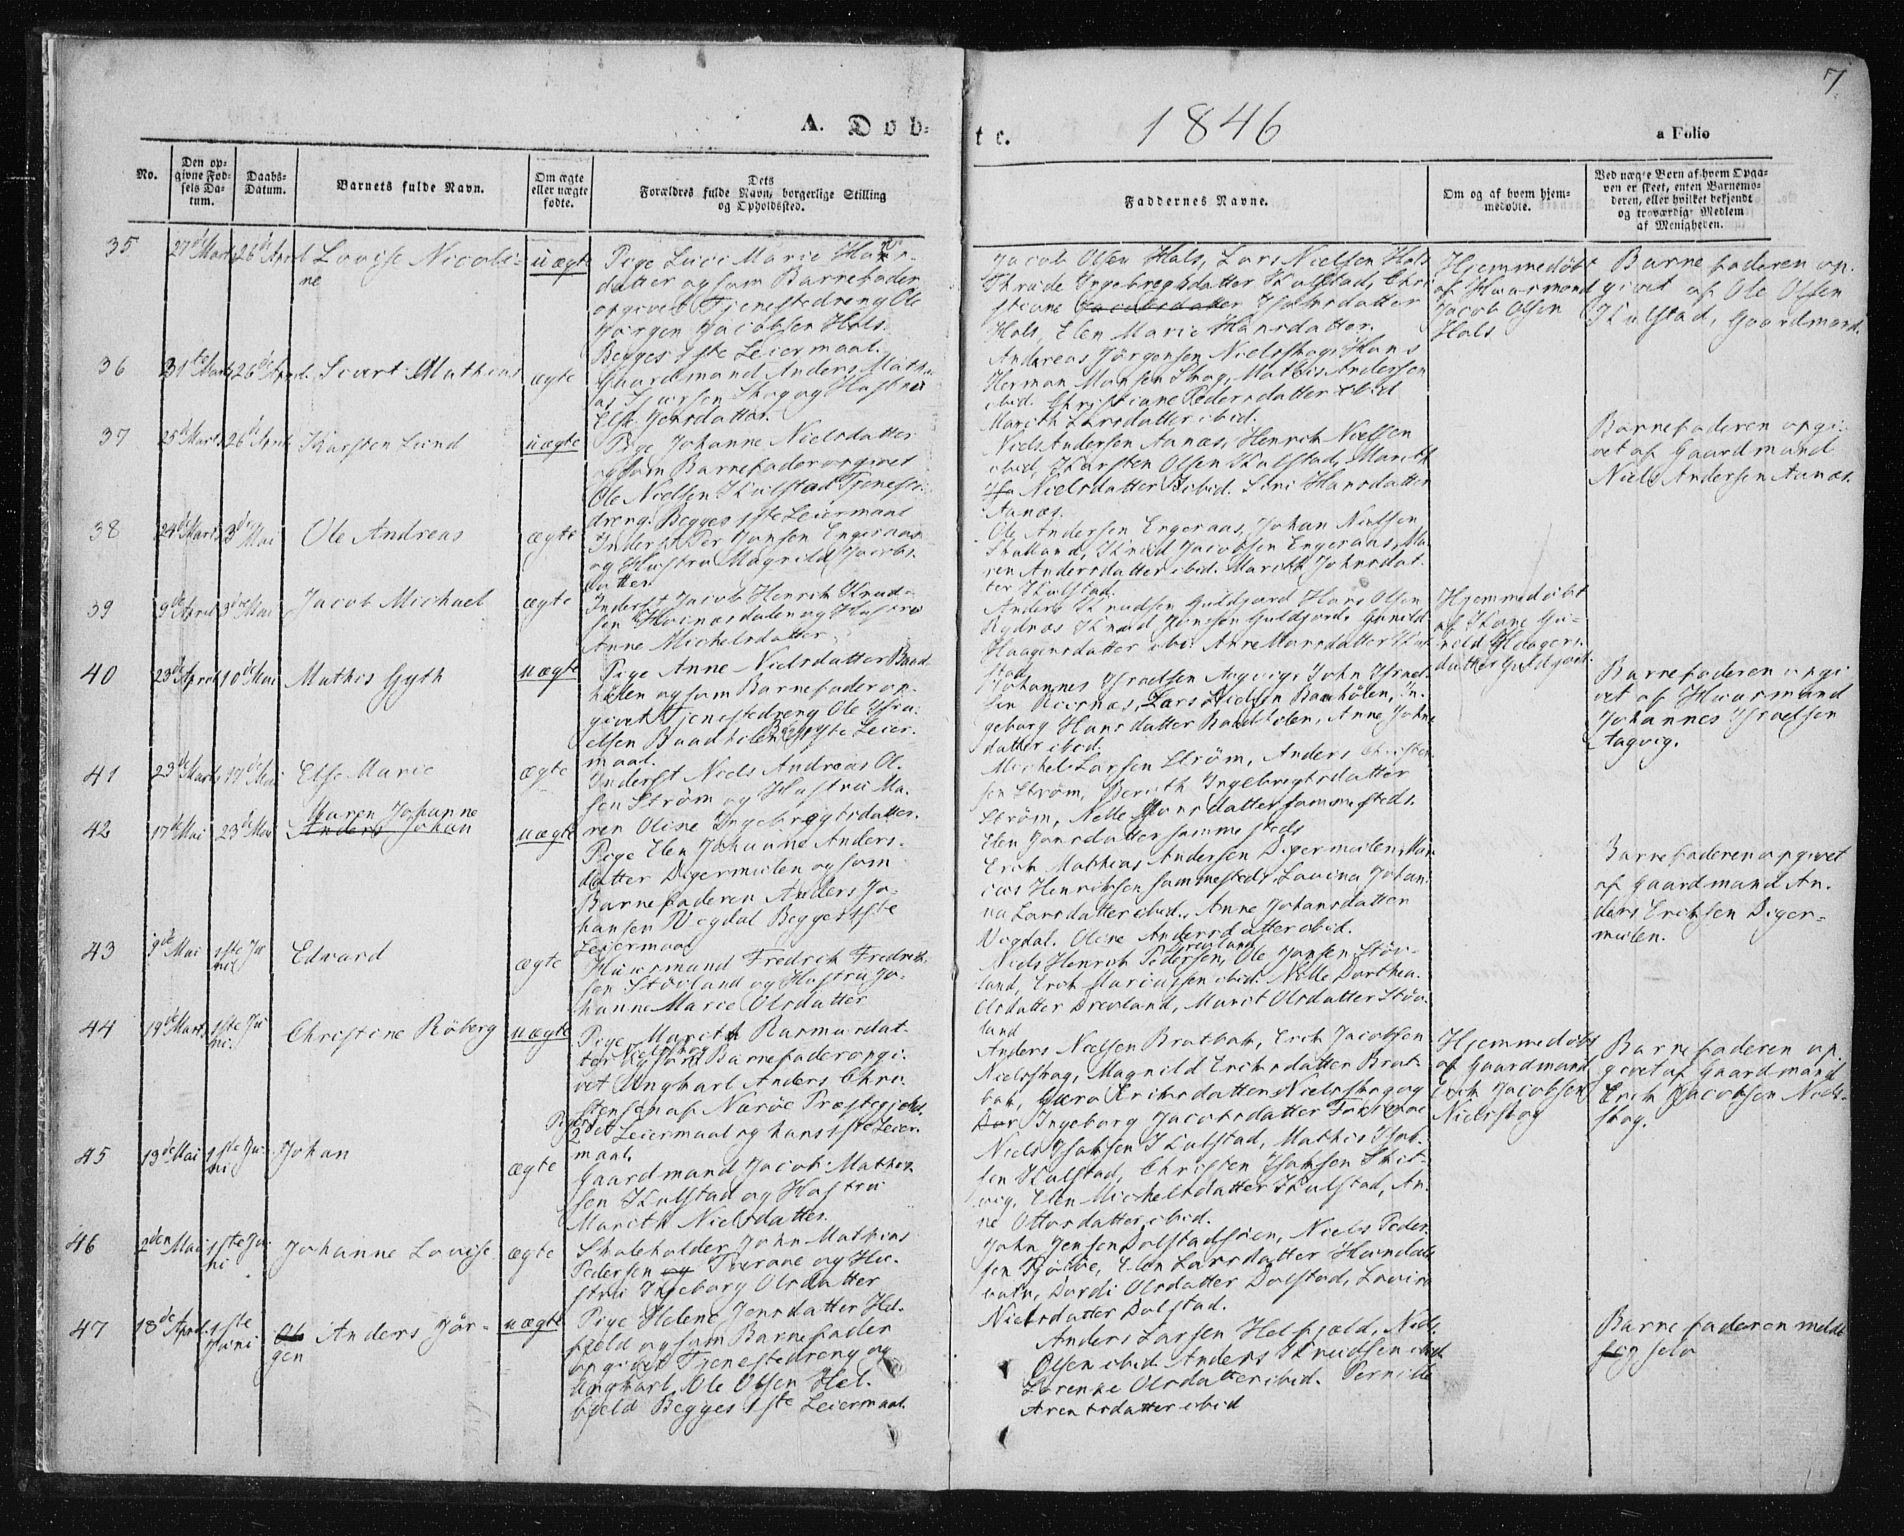 7
A. Døb-
te.
1846
a Folio
No.
Den op-
givne Fød-
sels Da-
tum.
Daabs-
Datum.
Barnets fulde Navn.
Om ægte
eller uægte
fødte.
Dets
Forældres fulde Navn, borgerlige Stilling
og Opholdssted.
Faddernes Navne.
Om og af hvem hjem-
medøbte.
Ved uægte Børn af hvem Opga-
ven er skeet, enten Barnemo-
deren, eller hvilket bekjendt
og troværdigt Medlem
af Menigheden.
35
27de Marts
26de April
Lovise Nicoli-
ne
uægte
Pige Luci Marie Hans-
datter og som Barnefader
opgivet Tjenestedreng Ole
Jørgen Jacobsen Hals.
Begges 1ste Leiermaal.
Jacob Olsen Hals, Lars Nielsen Hals
Ingebregtsdatter Kulstad, Chri
stiane Jacobsdatter Isaksdatter
Hals, Elen Marie Hansdatter.
Hjemmedøbt
af Huusmand
Jacob Olsen
Hals
Barnefaderen op-
givet af Ole Olsen
Kulstad, Gaardmand.
36
31te Marts
26de April
Sivert Mathias
ægte
Gaardmand Anders Mathi
as Sjursen Skog og Hustrue
Else Jensdatter.
Andreas Jørgensen Nielsskog, Hans
Herman Monsen Skog, Mathis Andersen
ibid. Christiane Pedersdatter ibid
Marith Larsdatter ibid.
37
25de Marts
26de April
Karsten Lund
uægte
Pige Johanne Nielsdatter
og som Barnefader opgivet
Ole Nielsen Kulstad Tjeneste-
dreng. Begges 1ste Leiermaal
Niels Andersen Aanæs, Henrik Nielsen
ibid, Karsten Olsen Kulstad, Marith
Nielsdatter ibid. Siri Hansdatter
Aanæs.
Barnefaderen opgi-
vet af Gaardmand
Niels Andersen Aanæs.
38
24de Marts
3die Mai
Ole Andreas
ægte
Inderst Per Jonsen Engeraas
og Hustru Magrild Jacobs
datter
Ole Andersen Engeraas, Johan Nielsen
Stalland, Knud Jacobsen Engeraas, Ma-
ren Andersdatter ibid. Marith Johnsdat-
ter Kulstad.
39
9de April
3die Mai
Jacob Michael
ægte
Inderst Jacob Henrik Knud-
sen og Hustrue
Anne Michelsdatter
Anders Knudsen Guldfjord, Hans Olsen
Rydnæs, Knud Jonsen Guldfjord, Gunild
Haagensdatter ibi. Anne Monsdatter Kul
stad
Hjemmedøbt
af Kone Gu-
nild Haagens-
datter Guldfjord.
40
23de April
10de Mai
Mathis Gyth
uægte
Pige Anne Nielsdatter Baad-
holen og som Barnefader op-
givet Tjenestedreng Ole Isra-
elsen Baadholen. Begges 1ste Leier-
maal.
Johannes Israelsen Aagvig, John Israel-
sen, Lars Nielsen Baadholen, In-
geborg Hansdatter Baadholen, Anne John-
datter ibid.
Barnefaderen opgi
vet af Huusmand
Johannes Israelsen
Aagvig.
41
23de Marts
17de Mai
Else Marie
ægte
Inderst Niels Andreas Ol-
sen Strøm og Hustru Ma-
ren Oline Ingebregtsdatter.
Michel Larsen Strøm, Anders Christen-
sen Strøm, Berith Ingebrigtsdatter
Strøm, Nelle Jonsdatter sammesteds.
Elen Jonsdatter sammesteds
42
17de Mai
23de Mai
Maren Johanne
Anders Johan
uægte
Pige Elen Johanne Anders-
datter Digermulen og som
Barnefaderen Anders Jo-
hansen Vegdal. Begges 1ste
Leiermaal
Erich Mathias Andersen Digermulen, Mar-
cus Henriksen sammesteds, Lovina Johan-
na Larsdatter ibid., Anne Johansdatter
Vegdal. Oline Andersdatter ibid.
Barnefaderen opgivet
af Gaardmand An-
ders Erichsen Diger-
mulen.
43
9de Mai
1ste Ju
ni
Edvard
ægte
Huusmand Fredrik Fredrik-
sen Støvland og Hustru Jo-
hanne Marie Olsdatter
Niels Henrik Pedersen Drevland, Ole Jonsen Støv-
land, Erik Marcussen ibid. Nelle Dorthea
Olsdatter Drevland, Marit Olsdatter Støv-
land
44
19de Marts
1ste Ju
ni.
Christine Røberg
uægte
Pige Marith Rasmusdat-
ter Nielsskog og som Barnefader opgi-
vet Ungkarl Anders Chri-
stensen af Nærøe Præstegjeld.
Pigens 2det Leiermaal og hans 1ste Leier-
maal.
Anders Nielsen Bratbak, Erich Jacobsen
Nielsskog, Magnild Eriksdatter Brat-
bak, Sara Eriksdatter Nielsskog og
Ingeborg Jacobsdatter
Hjemmedøbt
af Gaardmand
Erich Jacobsen
Nielsskog
Barnefaderen op-
givet af Gaardmand
Erich Jacobsen Niels-
skog.
45
13de Mai
1ste Ju-
ni
Johan
ægte
Gaardmand Jacob Mathis
sen Kulstad og Hustru
Marith Nielsdatter.
Niels Isaksen Kulstad, Mathis Isak-
sen Kulstad, Christen Isaksen Skit-
vig, Elen Michelsdatter Kulstad, An-
ne Ottosdatter ibid.
46
2den Mai
1ste Ju-
ni
Johanne Lovise
ægte
Skoleholder John Mathias
Pedersen og og Hu-
stru Ingeborg Olsdatter
John Jensen Dolstadsøen, Niels Peder-
sen, Elen Larsdatter Hundals
vatn, Dordi Olsdatter Dolstad, Lovise
Nielsdatter Dolstad.
47
18de April
1ste
Juni
Ole Anders Jør-
gen
uægte
Pige Helene Jensdatter Hel-
fjeld og som Barnefader
opgivet Tjenestedreng og
Ungkarl Ole Olsen Hel-
fjeld. Begges 1ste Leiermaal.
Anders Larsen Helfjeld, Niels
Olsen ibid. Anders Knudsen ibid
Lorense Olsdatter ibid. Pernille
Arentsdatter ibid
Barnefaderen meldt
sig selv